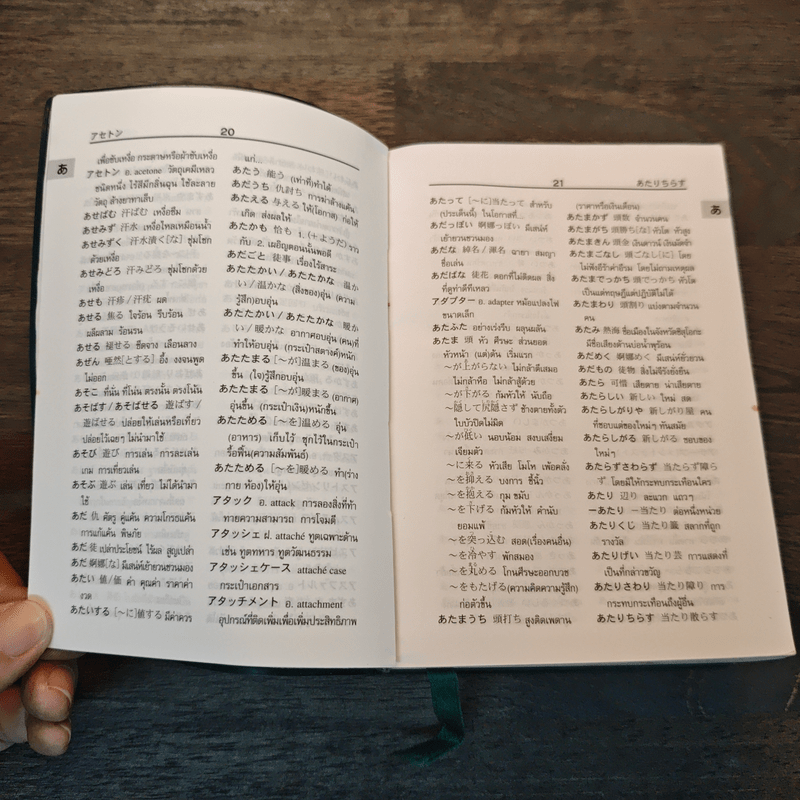 アセトン 20
あ
เพื่อซับเหงื่อ กระดาษหรือผ้าซับเหงื่อ
アセトン อ. acetone วัตถุเคมีเหลว
ชนิดหนึ่ง ไร้สีมีกลิ่นฉุน ใช้ละลาย
วัตถุ ล้างยาทาเล็บ
あせばむ 汗ばむ เหงื่อซึม
あせみず 汗水 เหงื่อไหลเหมือนน้ำ
あせみずく 汗水漬く[な] ชุ่มโชก
ด้วยเหงื่อ
あせみどろ 汗みどろ ชุ่มโชกด้วย
เหงื่อ
あせも 汗疹/汗疣 ผด
あせる 焦る ใจร้อน รีบร้อน
ผลีผลาม ร้อนรน
あせる 褪せる ซีดจาง เลือนลาง
あぜん 唖然[とする] อึ้ง งงจนพูด
ไม่ออก
あそこ ที่นั่น ที่โน่น ตรงนั้น ตรงโน้น
あそばす/あそばせる 遊ばす/
遊ばせる ปล่อยให้เล่นหรือเที่ยว
ปล่อยไว้เฉยๆ ไม่นำมาใช้
あそび 遊び การเล่น การละเล่น
เกม การเที่ยวเล่น
あそぶ 遊ぶ เล่น เที่ยว ไม่ได้นำมา
ใช้
あだ 仇 ศัตรู คู่แค้น ความโกรธแค้น
การแก้แค้น พิษภัย
あだ 徒 เปล่าประโยชน์ ไร้ผล สูญเปล่า
あだ 婀娜[な] มีเสน่ห์เย้ายวนชวนมอง
あたい 値/価 ค่า คุณค่า ราคาค่า
งวด
あたいする [～に]値する มีค่าควร
แก่...
あたう 能う (เท่าที่)ทำได้
あだうち 仇討ち การฆ่าล้างแค้น
あたえる 与える ให้(โอกาส) ก่อให้
เกิด ส่งผลให้
あたかも 恰も 1. (+ようだ) ราว
กับ 2. เผอิญตอนนั้นพอดี
あだごと 徒事 เรื่องไร้สาระ
あたたかい/あたたかな 温か
い/温かな (สิ่งของ)อุ่น (ความ
รู้สึก)อบอุ่น
あたたかい/あたたかな 暖か
い/暖かな อากาศอบอุ่น (คน)ที่
ทำให้อบอุ่น (กระเป๋าสตางค์)หนัก
あたたまる [～が]温まる (ของ)อุ่น
ขึ้น (ใจ)รู้สึกอบอุ่น
あたたまる [～が]暖まる (อากาศ)
อุ่นขึ้น (กระเป๋าเงิน)หนักขึ้น
あたためる [～を]温める อุ่น
(อาหาร) เก็บไว้ ซุกไว้ในกระเป๋า
รื้อฟื้น(ความสัมพันธ์)
あたためる [～を]暖める ทำ(ร่าง
กาย ห้อง)ให้อุ่น
アタック อ. attack การลองสิ่งที่ท้า
ทายความสามารถ การโจมตี
アタッシェ ฝ. attaché ทูตเฉพาะด้าน
เช่น ทูตทหาร ทูตวัฒนธรรม
アタッシェケース attaché case
กระเป๋าเอกสาร
アタッチメント อ. attachment
อุปกรณ์ที่ติดเพิ่มเพื่อเพิ่มประสิทธิภาพ
21 あたりちらす
あ
あたって [～に]当たって สำหรับ
(ประเด็นนี้) ในโอกาสที่...
あだっぽい 婀娜っぽい มีเสน่ห์
เย้ายวนชวนมอง
あだな 綽名/渾名 ฉายา สมญา
ชื่อเล่น
あだばな 徒花 ดอกที่ไม่ติดผล สิ่ง
ที่ดูท่าดีทีเหลว
アダプター อ. adapter หม้อแปลงไฟ
ขนาดเล็ก
あたふた อย่างเร่งรีบ ผลุนผลัน
あたま 頭 หัว ศีรษะ ส่วนยอด
หัวหน้า (แต่)ต้น เริ่มแรก
～が上がらない ไม่กล้าตีเสมอ
ไม่กล้าหือ ไม่กล้าสู้ด้วย
～が下がる ก้มหัวให้ นับถือ
～隠して尻隠さず ช้างตายทั้งตัว
ใบบัวปิดไม่มิด
～が低い นอบน้อม สงบเสงี่ยม
เจียมตัว
～に来る หัวเสีย โมโห เพ้อคลั่ง
～を抑える บงการ ชี้นิ้ว
～を抱える กุม ขมับ
～を下げる ก้มหัวให้ คำนับ
ยอมแพ้
～を突っ込む สอด(เรื่องคนอื่น)
～を冷やす พักสมอง
～を丸める โกนศีรษะออกบวช
～をもたげる(ความคิดความรู้สึก)
ก่อตัวขึ้น
あたまうち 頭打ち สูงติดเพดาน
(ราคาหรือเงินเดือน)
あたまかず 頭数 จำนวนคน
あたまがち 頭勝ち[な] หัวโต หัวสูง
あたまきん 頭金 เงินดาวน์ เงินมัดจำ
あたまごなし 頭ごなし[に] โดย
ไม่ฟังอีร้าค่าอีรม โดยไม่ถามเหตุผล
あたまでっかち 頭でっかち หัวโต
เป็นแต่ทฤษฎีแต่ปฏิบัติไม่ได้
あたまわり 頭割り แบ่งตามจำนวน
คน
あたみ 熱海 ชื่อเมืองในจังหวัดชิสุโอกะ
มีชื่อเสียงด้านบ่อน้ำพุร้อน
あだめく 婀娜めく มีเสน่ห์ยั่วยวน
あだもの 徒物 สิ่งไม่จีรังยั่งยืน
あたら 可惜 เสียดาย น่าเสียดาย
あたらしい 新しい ใหม่ สด
あたらしがりや 新しがり屋 คน
ที่ชอบแต่ของใหม่ๆ ทันสมัย
あたらしがる 新しがる ชอบของ
ใหม่ๆ
あたらずさわらず 当たらず障ら
ず โดยมิให้กระทบกระเทือนใคร
あたり 辺り ละแวก แถวๆ
ーあたり ー当たり ต่อหนึ่งหน่วย
あたりくじ 当たり籤 สลากที่ถูก
รางวัล
あたりげい 当たり芸 การแสดงที่
เป็นที่กล่าวขวัญ
あたりさわり 当たり障り การ
กระทบกระเทือนถึงผู้อื่น
あたりちらす 当たり散らす